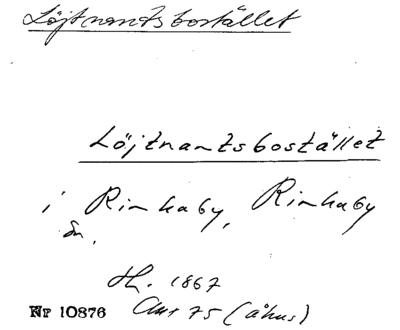 Löjtnantsbostället
Löjtnantsbostället
i Rinkaby, Rinkaby
sn.
1867
Nr 10876 75 (åhus)